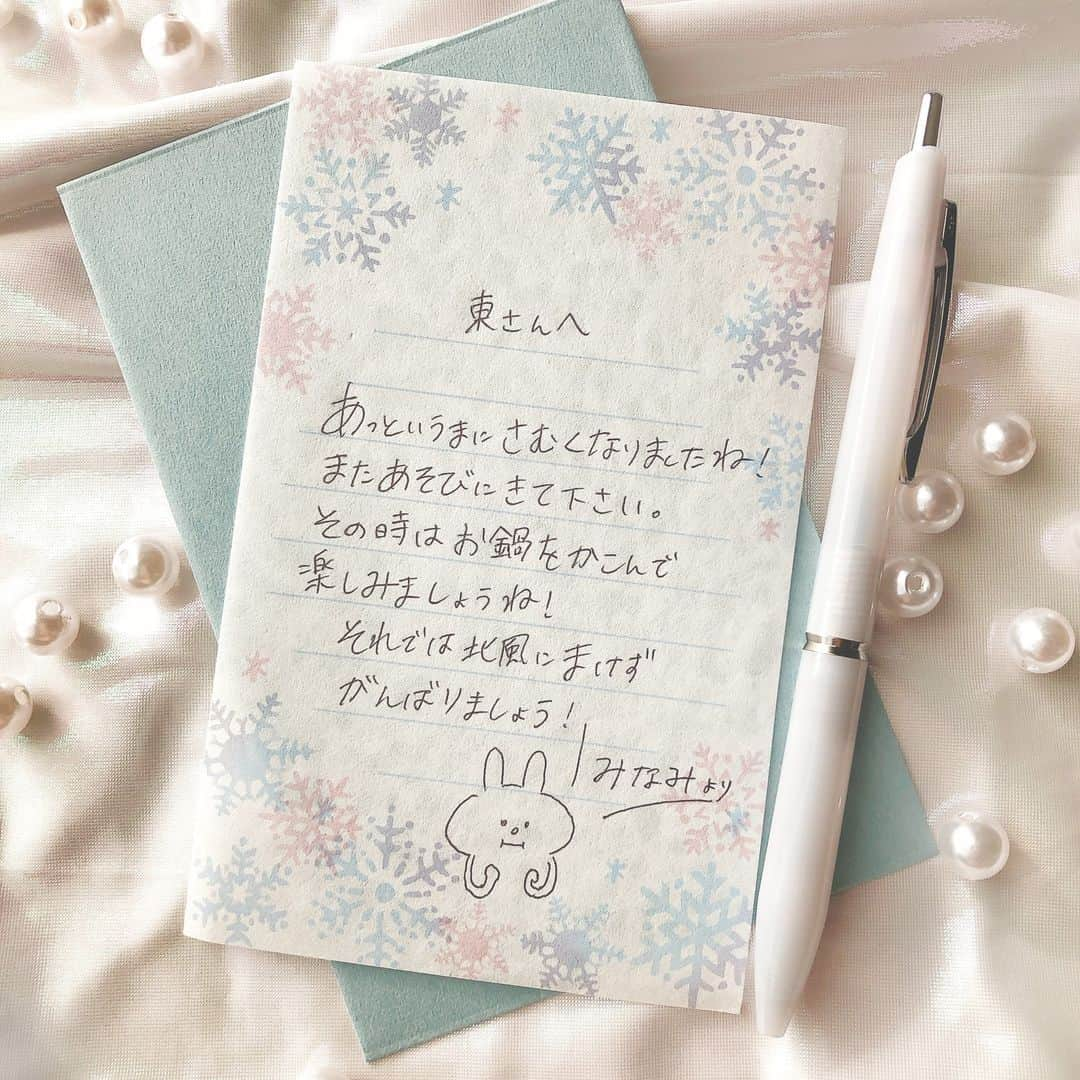 東さんへ
あっというまにさむくなりましたね!
またあそびにきて下さい。
その時はお鍋をかこんで
楽しみましょうね!
それでは北風にまけず
がんばりましょう!
みなみより